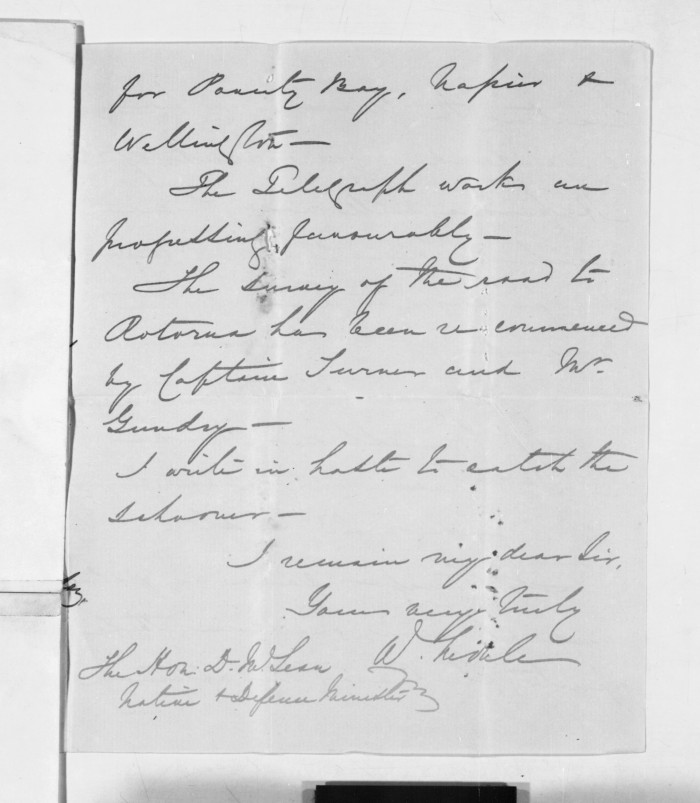 for Poverty Bay, Napier &
Wellington —
The Telegraph works are
progressing favourably —
The survey of the road to
Rotorua has been re commenced
by Captain Turner and Mr.
Gundry —
I write in haste to catch the
schooner —
I remain my dear Sir,
Yours very truly
W.
The Hon: D. McLean
Native & Defence Minister